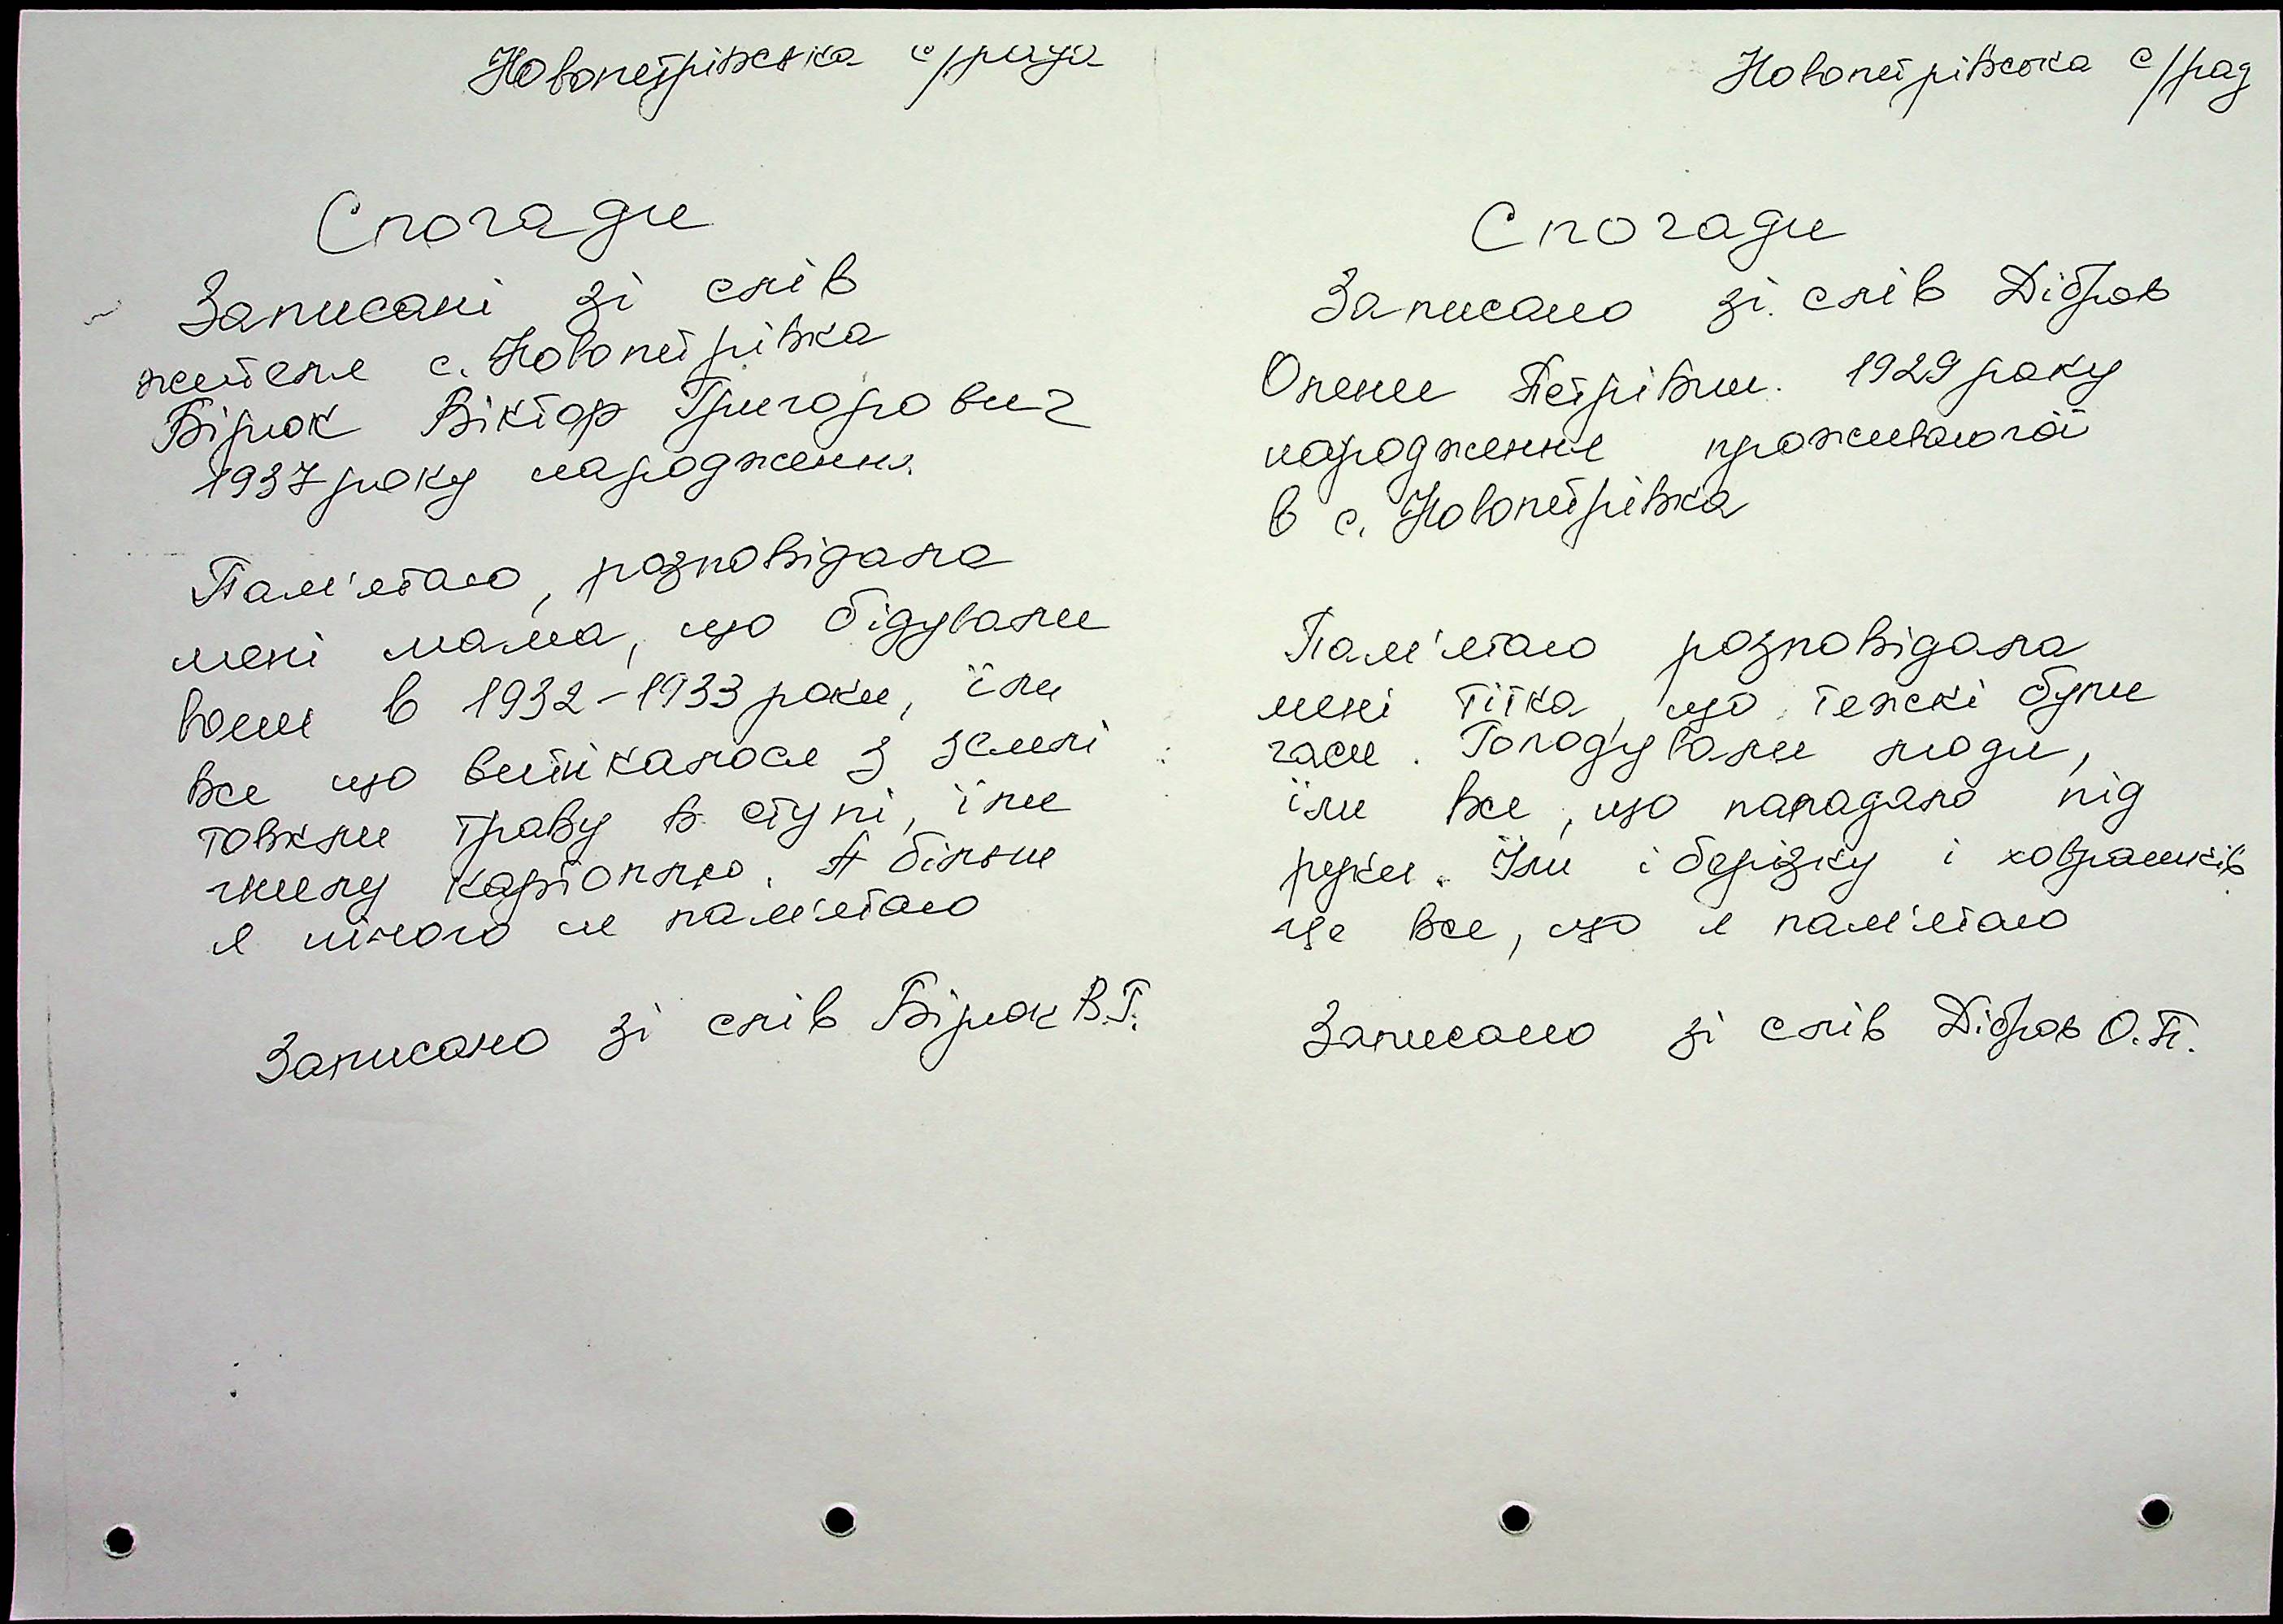 Новопетрівська с/рада
Спогади
Записані зі слів
жителя с. Новопетрівка
Бірюк Віктор Григорович
1937 року народження.
Пам'ятаю, розповідала
мені мама, що бідували
вони в 1932-1933 роки, їли
все що витикалося з землі
товкли траву в ступі, їли
гнилу картоплю. А більш
я нічого не пам'ятаю
Записано зі слів Бірюк В.Г.
Новопетрівська с/рад
Спогади
Записано зі слів Дібров
Олени Петрівни. 1929 року
народження проживаючої
в с. Новопетрівка
Пам'ятаю розповідала
мені тітка, що тяжкі були
часи. Голодували люди,
їли все, що попадало під
руки. Їли і берізку і ховрашків
це все, що я пам'ятаю
Записано зі слів Дібров О.П.